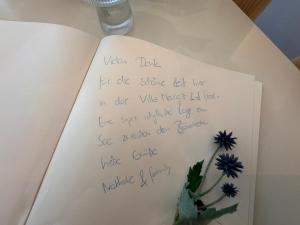 Vielen Dank
für die schöne Zeit hier
in der Villa
Eine super idyllische Lage am
See zwischen den Bäumen.
Liebe Grüße
Nathalie & family